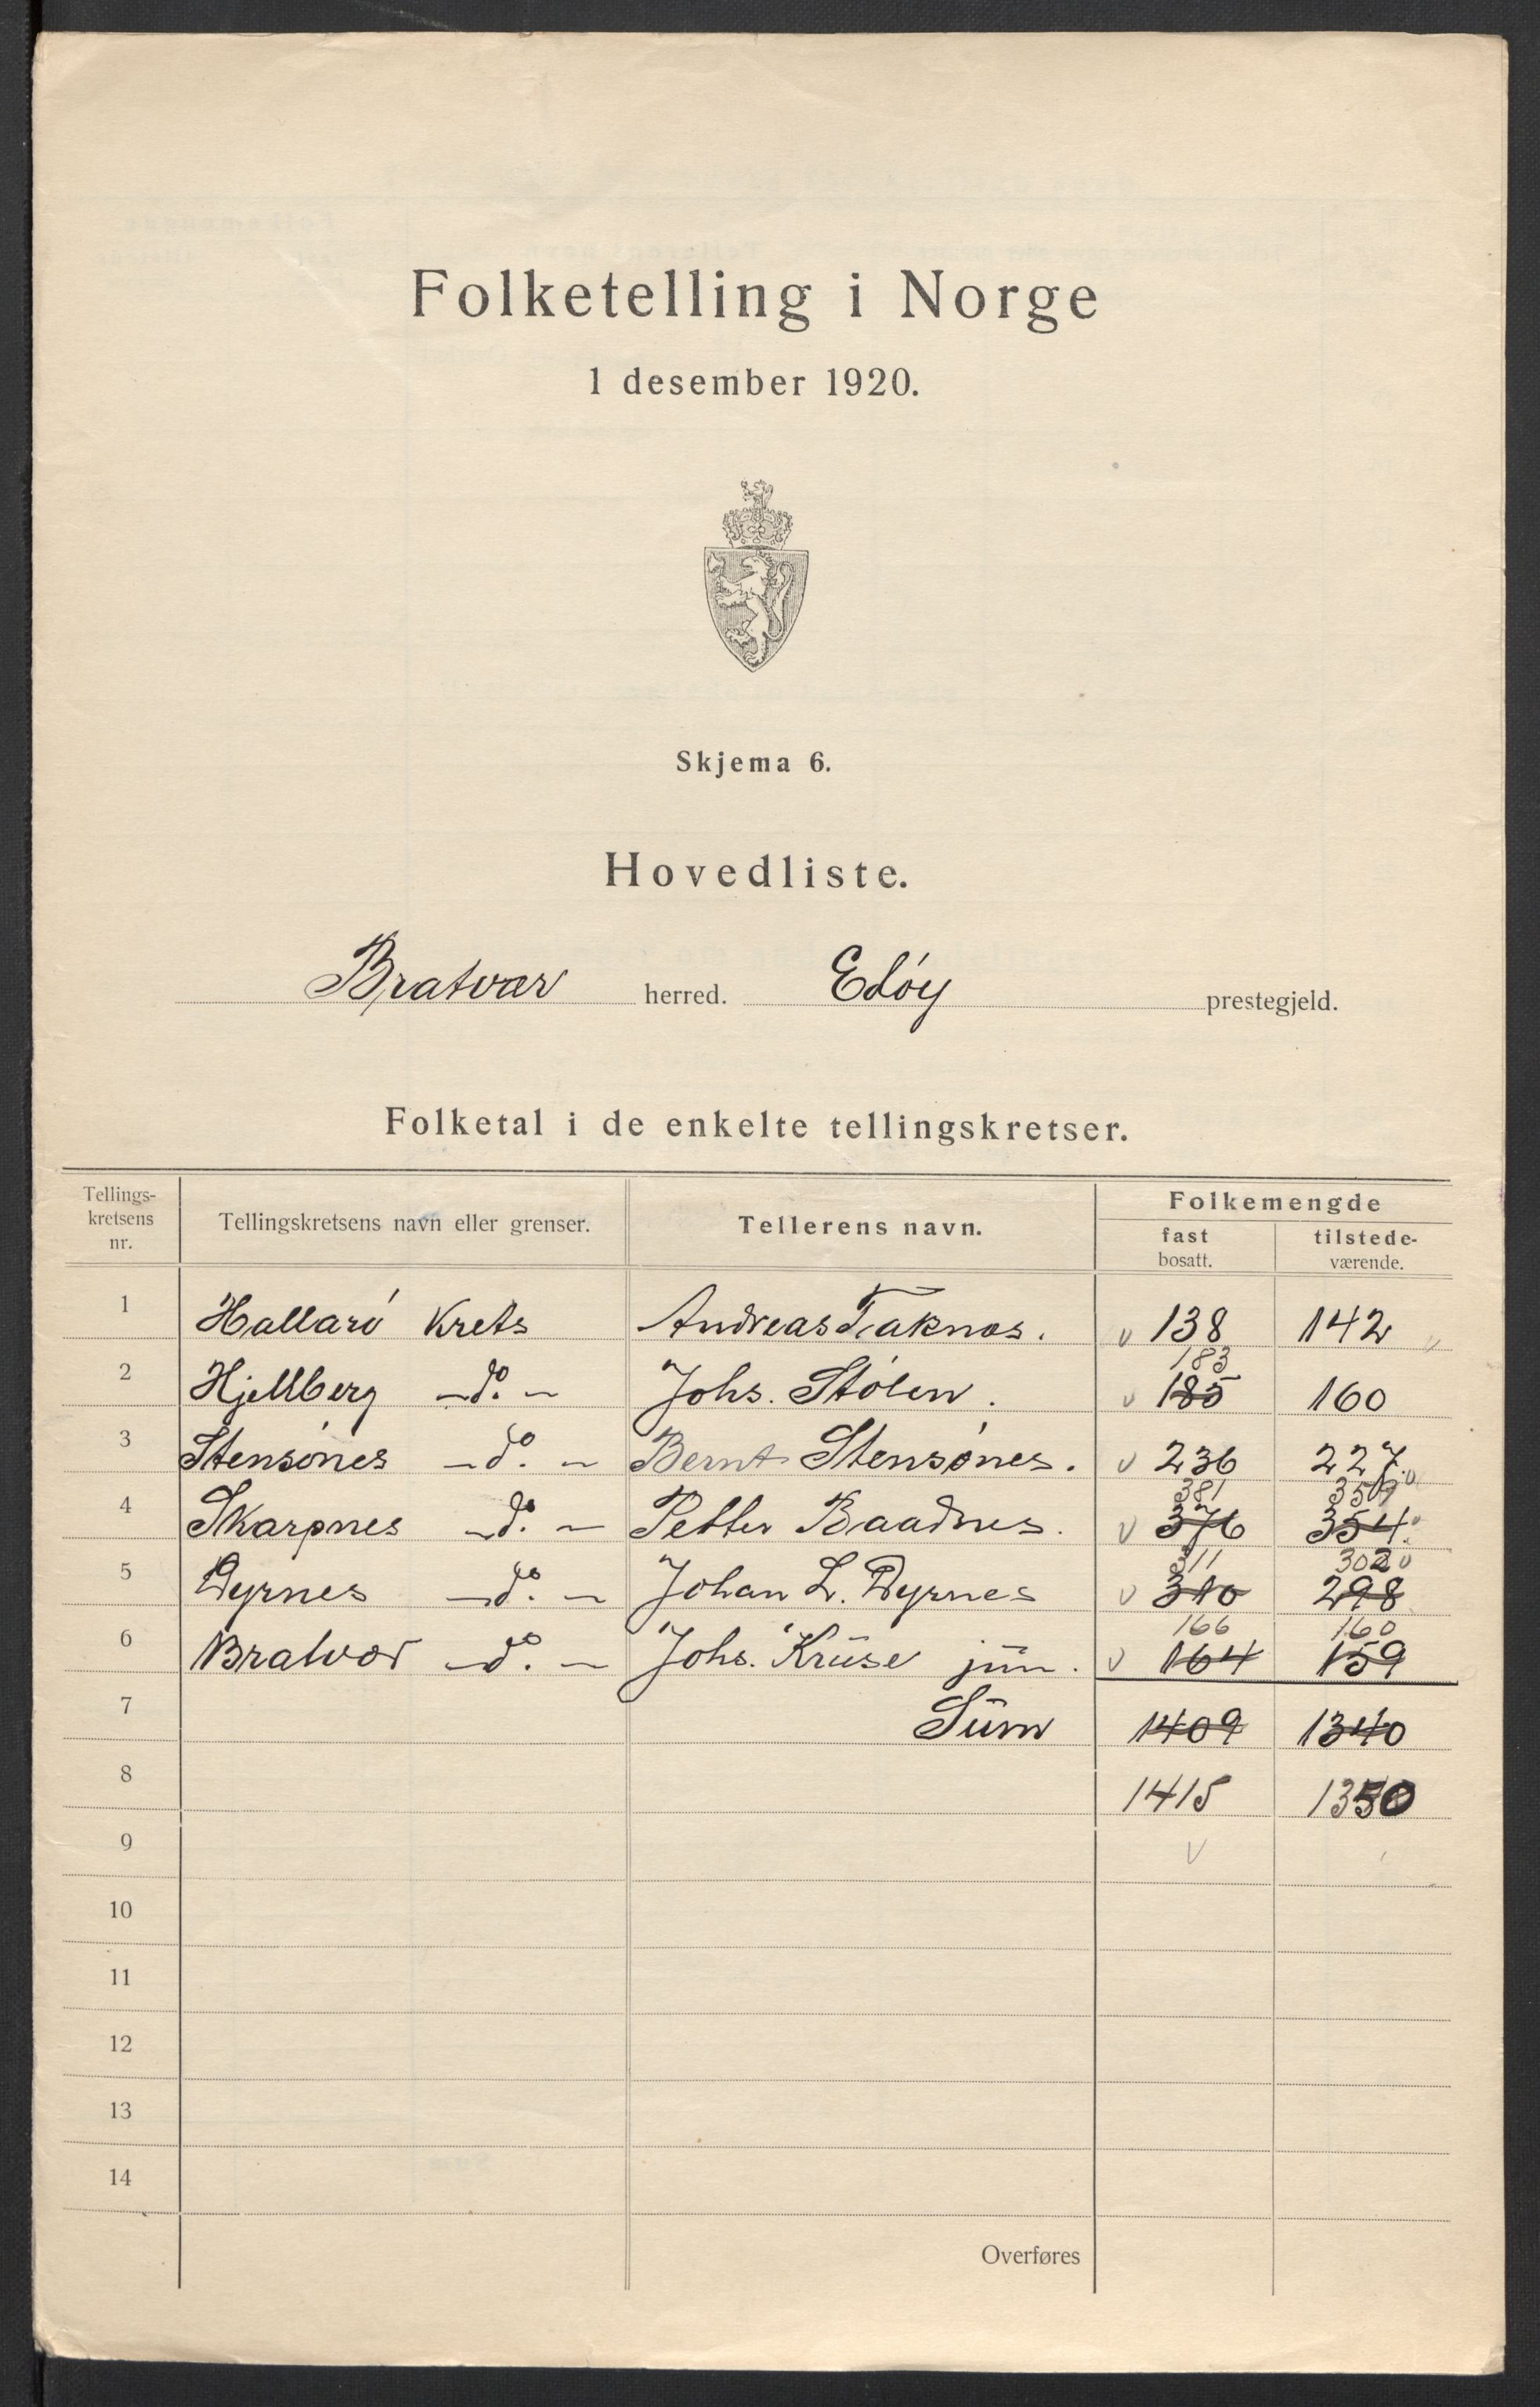 Folketelling i Norge
1 desember 1920.
Skjema 6.
Hovedliste.
Bratvær herred. Edøy prestegjeld.
Folketal i de enkelte tellingskretser.
Tellings-kretsens nr. Tellingskretsens navn eller grenser. Tellerens navn. Folkemengde
fast bosatt. tilstede-værende.
1 Hallarö Krets Andreas Taknæs. v 138 142
183
2 Hjellberg - do. - Johs. Stölen. v 185 160
3 Stensönes - do. - Bernt Stensönes. v 236 227.
381 359
4 Skarpnes - do. - Petter Baadnes. v 376 354.
311 302
5 Dyrnes - do. - Johan L. Dyrnes v 310 298
166 160
6 Bratvær - do. - Johs. Krüse jün. v 164 159
7 Süm 1409 1340
8 1415 1350
9 v
10
11
12
13
14
Overføres